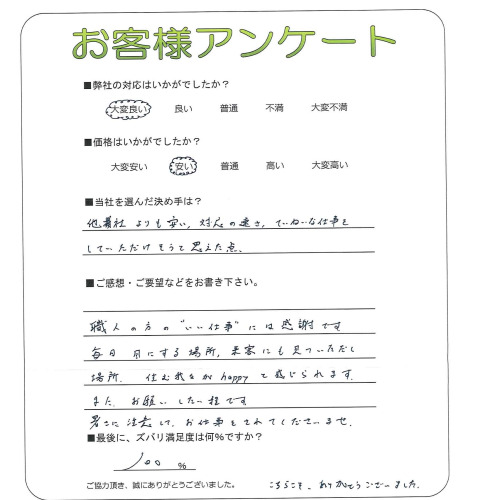 お客様アンケート
■弊社の対応はいかがでしたか？
大変良い 良い 普通 不満 大変不満
■価格はいかがでしたか？
大変安い 安い 普通 高い 大変高い
■当社を選んだ決め手は？
他業社よりも安い，対応の速さ，ていねいな仕事を
していただけそうと思えた点、
■ご感想・ご要望などをお書き下さい。
職人の方の"いい仕事"には感謝です
毎日目にする場所，来客にも見ていただく
場所．住む我々がhappyと感じられます．
また、お願いしたい程です
暑さに注意して、お仕事をされてくださいませ．
■最後に、ズバリ満足度は何％ですか？
100 %
ご協力頂き、誠にありがとうございました。 こちらこそ、ありがとうございました．